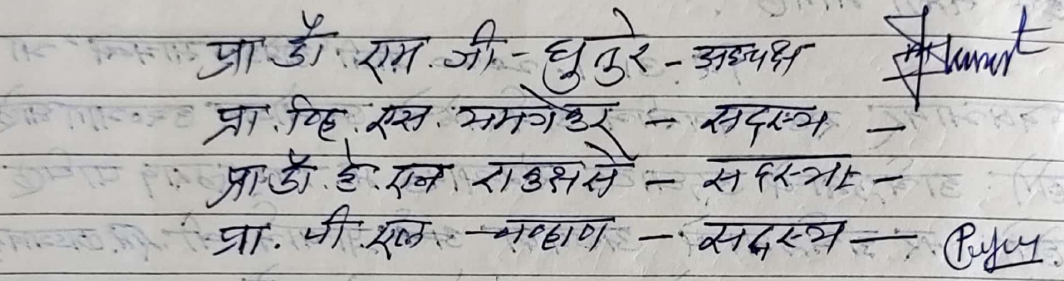 प्रा. डॉ. एम. जी. - धुतुरे - अध्यक्ष
प्रा. व्हि. एस. - सदस्य -
प्रा. डॉ. हे. एन. राक्षसे - सदस्या -
प्रा. पी. एल. चव्हाण - सदस्य -